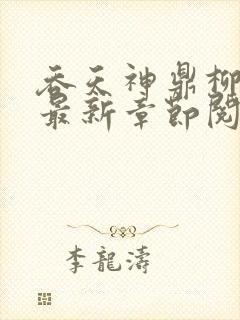 吞天神鼎柳
最新章節閱
李龍濤